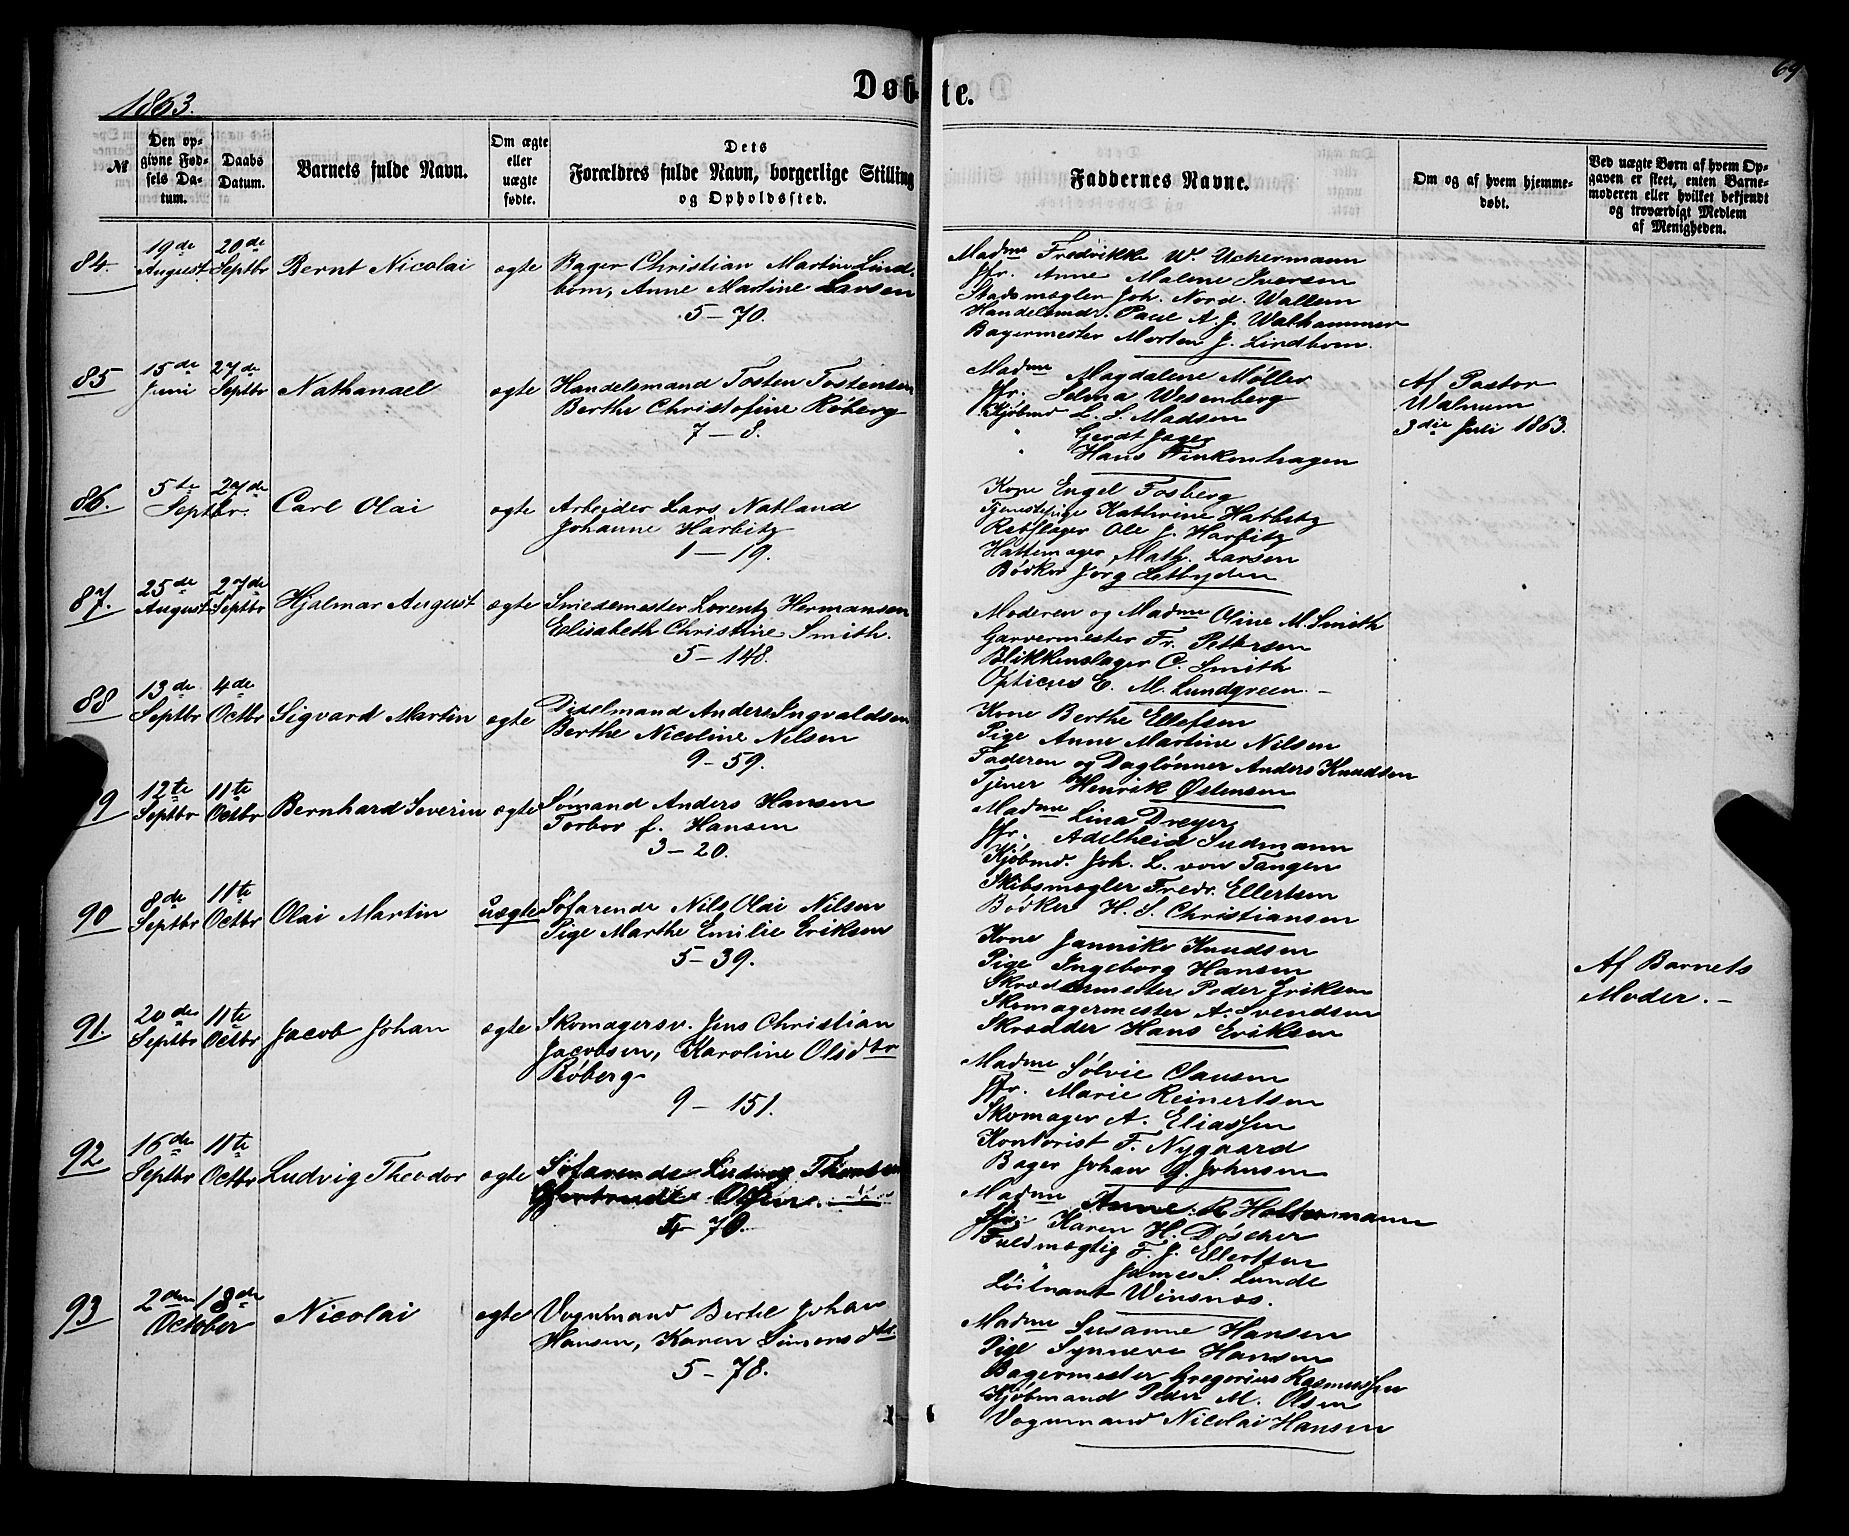 1863.
Døbte.
69
№
Den opgivne Fødsels Datum.
Daabs Datum.
Barnets fulde Navn.
Om ægte eller uægte fødte.
Dets Forældres fulde Navn, borgerlige Stilling og Opholdssted.
Faddernes Navne.
Om og af hvem hjemmedøbt.
Ved uægte Børn af hvem Opgaven er skeet, enten Barnemoderen eller hvilket bekjendt og troværdigt Medlem af Menigheden.
84.
19de August
20de Septbr
Bernt Nicolai
ægte
Bager Christian Martin Lind-
bom, Anne Martine Larsen
5-70.
Madme Fredrikke W. Uchermann
Jfr. Anne Malene Iversen
Stadsmægler Joh. Nord. Wallem
Handelsmd. Paul A. J. Walhammer
Bagermester Morten J. Lindbom.
85
15de Juni
27de Septbr
Nathanael
ægte
Handelsmand Tosten Tostensen
Berthe Christofine Røberg
7-8.
Madme Magdalene Møller
Jfr. Selma Wesenberg
Kjøbmd L. S. Madsen
" Gerdt Jager
Hans Finkenhagen
Af Pastor
Walnum
3die Juli 1863.
86.
5te
27de
Septbr.
Carl Olai
ægte
Arbeider Lars Natland
Johanne Harbitz
1-19.
Kone Engel Fosberg
Tjenestepige Kathrine Hatbitz
Rebslager Ole J. Harbitz
Hattemager Math. Larsen
Bødker Jørg
87.
25de August
27de Septbr
Hjalmar August
ægte
Smedemester Lorentz Hermansen
Elisabeth Christine Smith.
5-148.
Moderen og Madme Oline M. Smith
Garvermester Fr. Pettersen
Blikkenslager C. Smith
Opticus E. M. Lundgreen.-
88
13de Septbr
4de Octbr
Sigvard Martin
ægte
Anders Ingvaldsen
Berthe Nicoline Nilsen
9-59.
Kone Berthe Ellefsen
Pige Anne Martine Nilsen
Faderen og Daglønner Anders Knudsen
Tjener Henrik Østensen
9
12te Septbr
11te Octbr
Bernhard Severin
ægte
Sømand Anders Hansen
Torbor f. Hansen
3-20.
Madme Lina Dreyer
Jfr. Adelheid Sudmann
Kjøbmd. Joh. L. von Tangen
Skibsmægler Fredr. Ellertsen
Bødker H. S. Christiansen
90
8de Septbr
11te Octbr
Olai Martin
uægte
Søfarende Nils Olai Nilsen
Pige Marthe Emilie Eriksen
5-39.
Kone Jannike Knudsen
Pige Ingeborg Hansen
Skræddermester Peder Eriksen
Skomagermester A. Svendsen
Skrædder Hans Eriksen
Af Barnets
Moder.-
91.
20de Septbr
11te Octbr
Jacob Johan
ægte
Skomagersv. Jens Christian
Jacobsen, Karoline Olsdtr
Røberg
9-151.
Madme Sølvie Clausen
Jfr. Marie Reinertsen
Skomager A. Eliassen
Kontorist F. Nygaard
Bager Johan G. Johnsen
92
16de Septbr
11te Octbr
Ludvig Theodor
ægte
Søfarende Ludvig
Gjertrude
70.
Madme Anne R Holtermann
Jfr. Karen H. Døscher
Fuldmægtig F. J. Ellertsen
" James S. Lunde
Løitnant Winsnæs.
93
2den
18de
October
Nicolai
ægte
Vognmand Bertel Johan
Hansen, Karen Simonsdtr
5-78.
Madme Susanne Hansen
Pige Synneve Hansen
Bagermester Gregorius Rasmussen
Kjøbmand Peder M. Olsen
Vognmand Nicolai Hansen